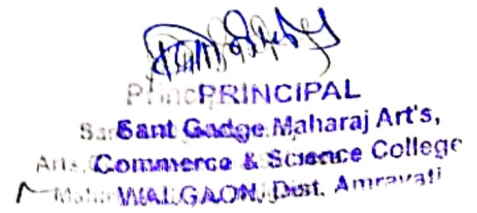 PRINCIPAL
Sant Gadge Maharaj Art's,
Commerce & Science College
WALGAON, Dist. Amravati